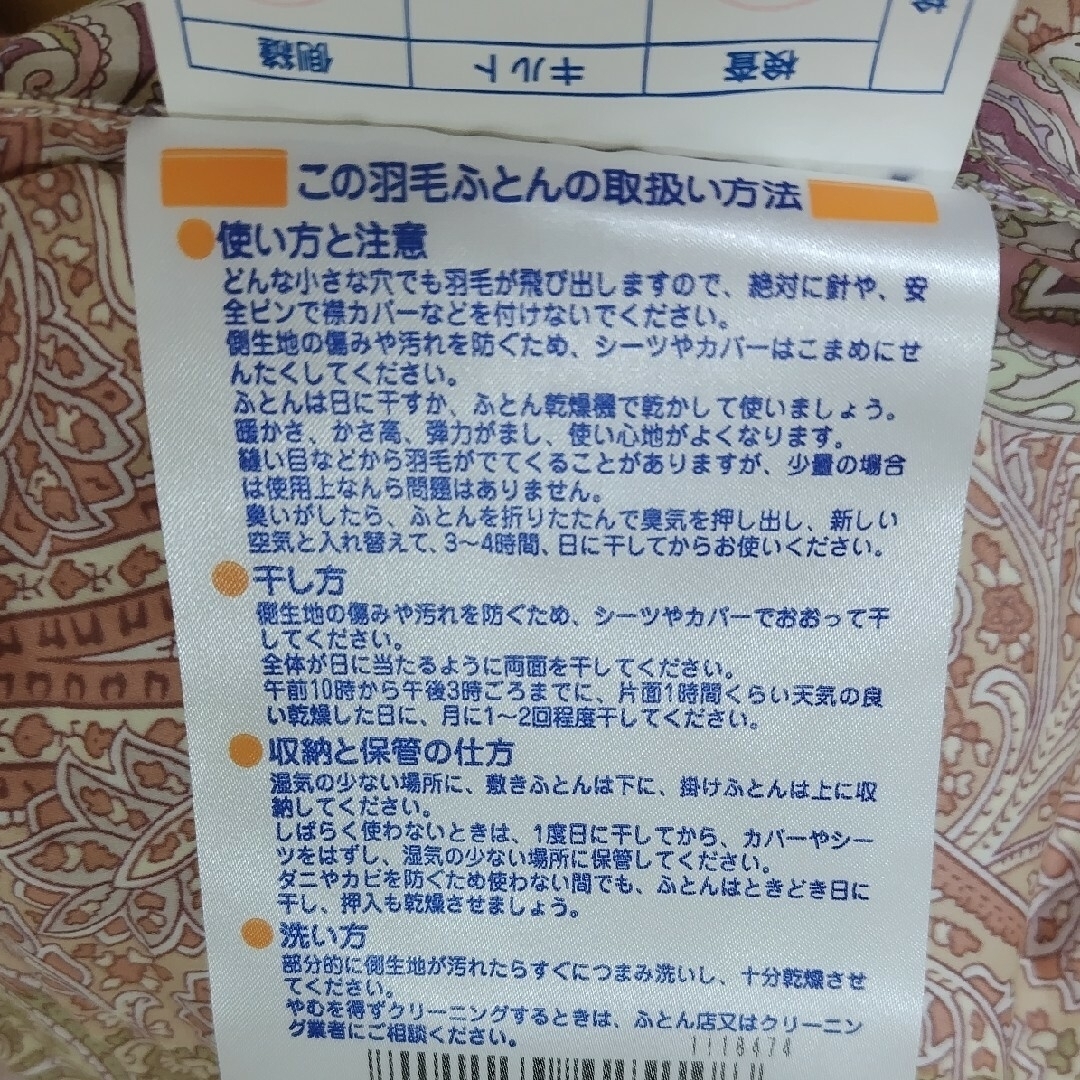 側縫 キルト 検査
この羽毛ふとんの取扱い方法
●使い方と注意
どんな小さな穴でも羽毛が飛び出しますので、絶対に針や、安
全ピンで襟カバーなどを付けないでください。
側生地の傷みや汚れを防ぐため、シーツやカバーはこまめにせ
んたくしてください。
ふとんは日に干すか、ふとん乾燥機で乾かして使いましょう。
暖かさ、かさ高、弾力がまし、使い心地がよくなります。
縫い目などから羽毛がでてくることがありますが、少量の場合
は使用上なんら問題はありません。
臭いがしたら、ふとんを折りたたんで臭気を押し出し、新しい
空気と入れ替えて、3〜4時間、日に干してからお使いください。
●干し方
側生地の傷みや汚れを防ぐため、シーツやカバーでおおって干
してください。
全体が日に当たるように両面を干してください。
午前10時から午後3時ごろまでに、片面1時間くらい天気の良
い乾燥した日に、月に1〜2回程度干してください。
●収納と保管の仕方
湿気の少ない場所に、敷きふとんは下に、掛けふとんは上に収
納してください。
しばらく使わないときは、1度日に干してから、カバーやシー
ツをはずし、湿気の少ない場所に保管してください。
ダニやカビを防ぐため使わない間でも、ふとんはときどき日に
干し、押入も乾燥させましょう。
●洗い方
部分的に側生地が汚れたらすぐにつまみ洗いし、十分乾燥させ
てください。
やむを得ずクリーニングするときは、ふとん店又はクリーニン
グ業者にご相談ください。
1118474